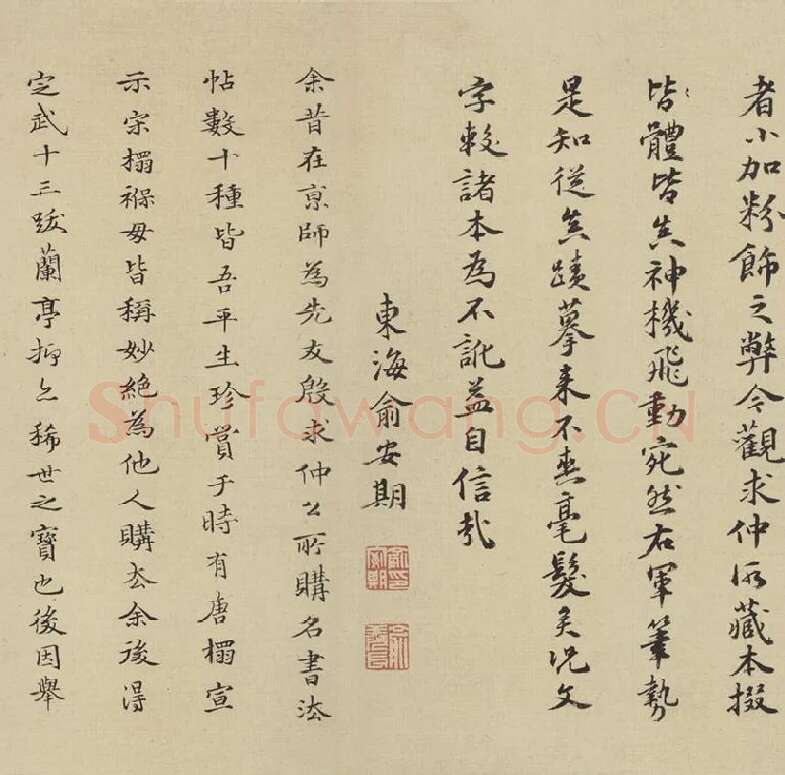 者小加粉飾之弊今觀求仲所藏本掇
皆體皆真神機飛動宛然右軍筆勢
是知從真蹟摹来不爽毫髮矣況文
字較諸本為不訛益自信哉
東海俞安期
余昔在京師為先友殷求仲公所購名書法
帖數十種皆吾平生珍賞于時有唐搨宣
示宋搨褉每皆稱妙絕為他人購去余後得
定武十三跋蘭亭抑亦稀世之寶也後因舉
Shufawang.CN